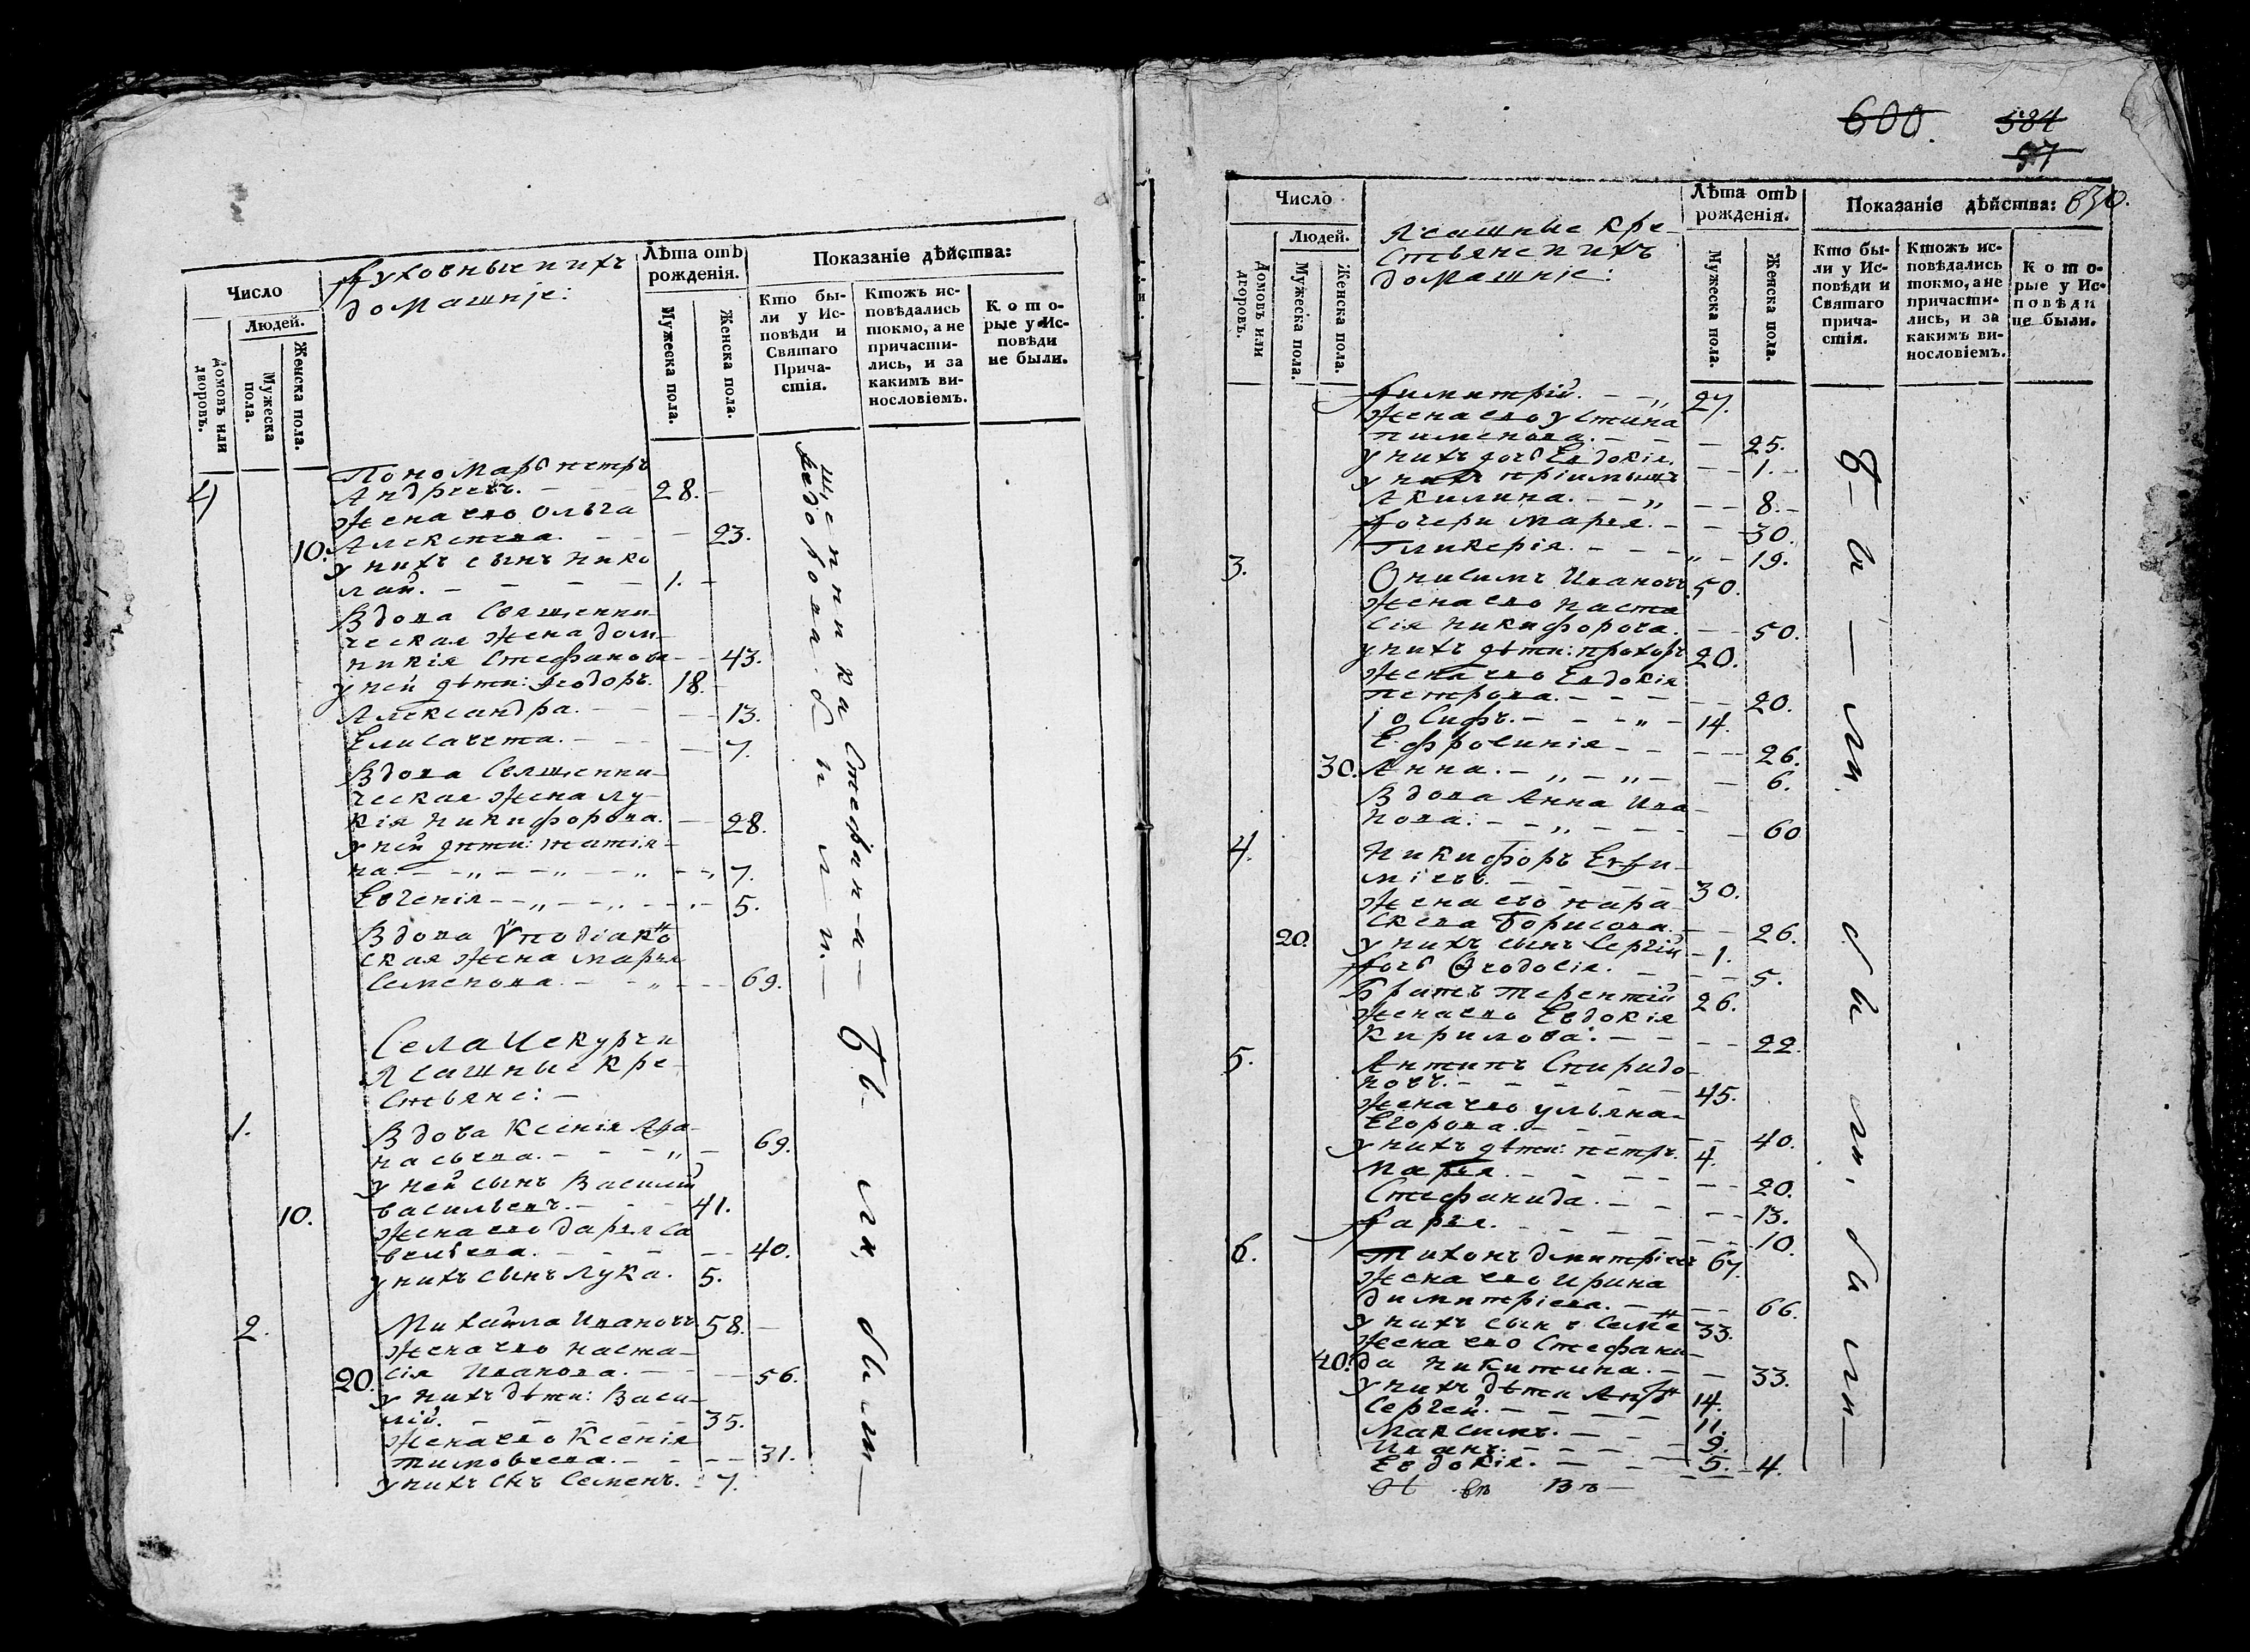 Число
Людей.
Домовъ или дворовъ.
Мужеска пола.
Женска пола.
Духовные и ихъ
домашніе:
Лѣта отъ
рожденія.
Мужеска пола.
Женска пола.
Показаніе дѣйства:
Кто бы-
ли у Ис-
повѣди и
Святаго
Прича-
стія.
Ктожъ ис-
повѣдались
токмо, а не
причасти-
лись, и за
какимъ ви-
нословіемъ.
Кото-
рые у Ис-
повѣди
не были.
4 Пономарь Петръ
Андреевъ. 28.
Жена его Ольга
10. Алексеева 23.
У нихъ сынъ Нико
лай. 1.
Вдова Священни-
ческая жена Дом-
никія Стефанова 43.
У ней дѣти: Ѳеодоръ. 18.
Александра. 13.
Елисавета. 7.
Вдова Священни-
ческая жена Лу-
кія Никифорова. 28.
У ней дѣти: Татія-
на. 7.
Евгенія 5.
Вдова Уподіакон
ская жена Марья
Семенова. 69.
Села
Ясашные кре-
стьяне:
1. Вдова Ксенія
69.
У ней сынъ Василій
10. Васильевъ. 41.
Жена его Дарья Са
вельева. 40.
У нихъ сынъ Лука. 5.
2. Михайла Ивановъ 58.
Жена его Наста-
20. сія Иванова. 56.
У нихъ дѣти: Васи-
лій. 35.
Жена его Ксенія
Тимовеева. 31.
У нихъ снъ Семенъ. 7.
Были
были
600.
584
97
630.
Число
Людей.
Домовъ или дворовъ.
Мужеска пола.
Женска пола.
Ясашные кре-
стьяне и ихъ
домашніе:
Лѣта отъ
рожденія.
Мужеска пола.
Женска пола.
Показаніе дѣйства:
Кто бы-
ли у Ис-
повѣди и
Святаго
прича-
стія.
Ктожъ ис-
повѣдались
токмо, а не
причасти-
лись, и за
какимъ ви-
нословіемъ.
Кото-
рые у Ис-
повѣди
не были.
Димитрій. 27.
Жена его Устина
Пименова. 25.
У нихъ дочь Евдокія. 1.
У нихъ пріимышъ
Акилина. 8.
Дочери Марья. 30.
Гликерія. 19.
3. Онисимъ Ивановъ 50.
Жена его Наста
сія Никифорова. 50.
У нихъ дѣти: Прохоръ 20.
Жена его Евдокія
Петрова. 20.
Іосифъ. 14.
Ефросинія 26.
30. Анна. 6.
Вдова Анна Ива-
нова: 60
4. Никифоръ Евфи-
міевъ. 30.
Жена его Пара-
скева Борисова. 26.
20. У нихъ сынъ Сергій 1.
Дочь Ѳеодосія. 5.
Братъ Терентій 26.
Жена его Евдокія
Кирилова. 22.
5. Антипъ Спиридо-
новъ. 45.
Жена его Ульяна
Егорова. 40.
У нихъ дѣти: Петръ. 4.
Марья. 20.
Стефанида. 13.
Дарья. 10.
6. Тихонъ Дмитріевъ 67.
Жена его Ирина
Димитріева. 66.
У нихъ сынъ Семе 33.
Жена его Стефани-
40. да Никитина. 33.
У нихъ дѣти 14.
Сергей. 11.
Максимъ. 9.
Иванъ. 5.
Евдокія. 4.
Были
были,
были